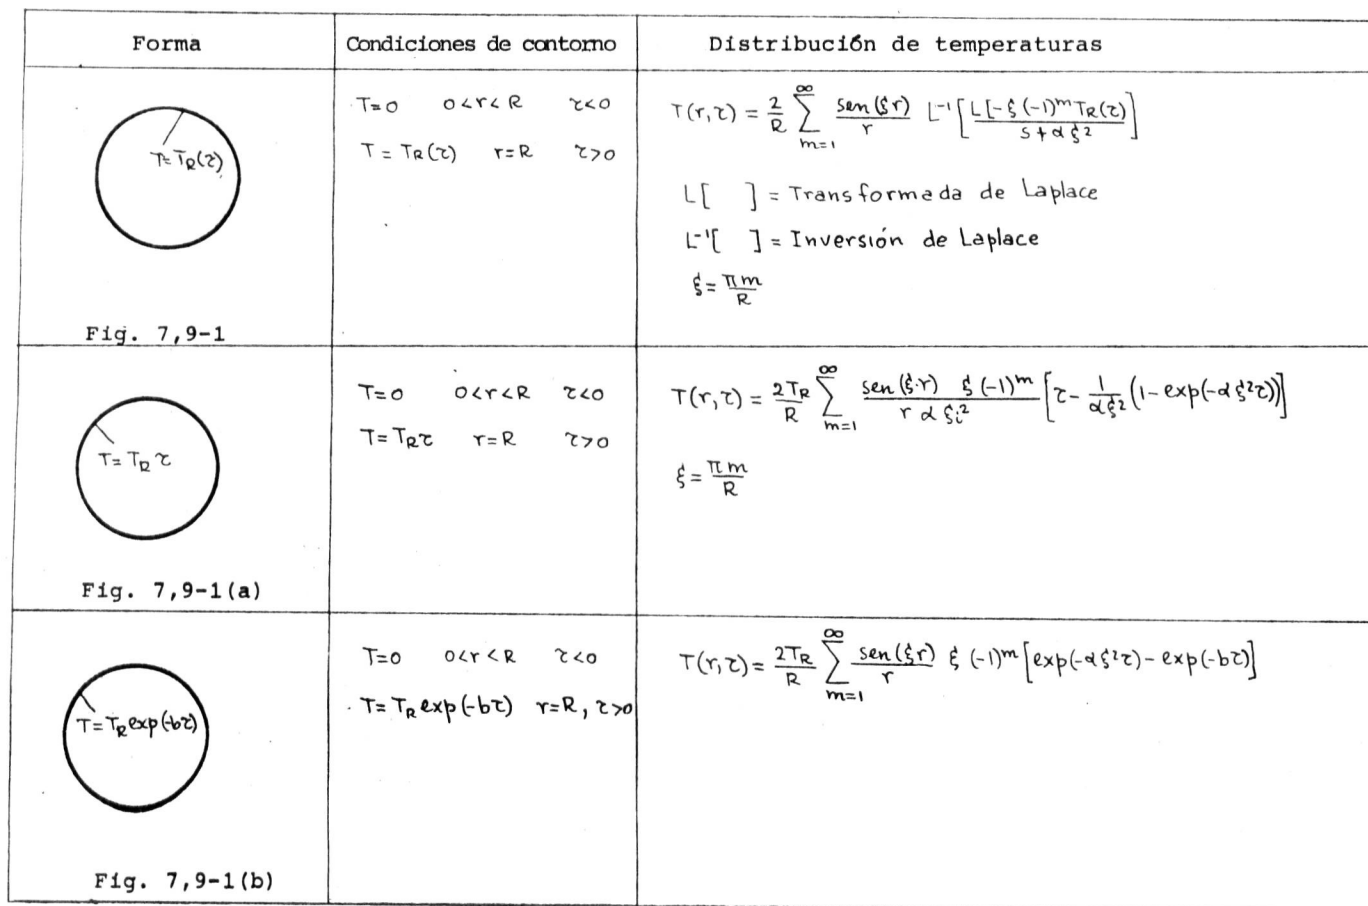 Forma
Condiciones de contorno
Distribución de temperaturas
T=TR(τ)
Fig. 7,9-1
T=0 0<r<R τ<0
T = TR(τ) r=R τ>0
T(r,τ) = 2/R ∑_{m=1}^{∞} sen(ξr)/r L⁻¹[L[-ξ(-1)^m TR(τ)]/(s+αξ²)]
L[ ] = Transformada de Laplace
L⁻¹[ ] = Inversión de Laplace
ξ = πm/R
T=TR τ
Fig. 7,9-1(a)
T=0 0<r<R τ<0
T=TRτ r=R τ>0
T(r,τ) = 2TR/R ∑_{m=1}^{∞} sen(ξ·r) ξ(-1)^m/(r α ξi²) [τ - 1/(αξ²) (1-exp(-αξ²τ))]
ξ = πm/R
T=TR exp(-bτ)
Fig. 7,9-1(b)
T=0 0<r<R τ<0
T=TR exp(-bτ) r=R, τ>0
T(r,τ) = 2TR/R ∑_{m=1}^{∞} sen(ξr)/r ξ(-1)^m [exp(-αξ²τ)-exp(-bτ)]